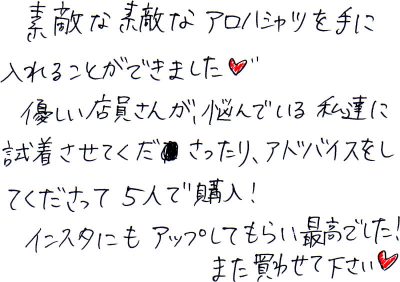 素敵な素敵なアロハシャツを手に
入れることができました♥
優しい店員さんが、悩んでいる私達に
試着させてくださったり、アドバイスをし
てくださって5人で購入!
インスタにもアップしてもらい最高でした!
また買わせて下さい♥